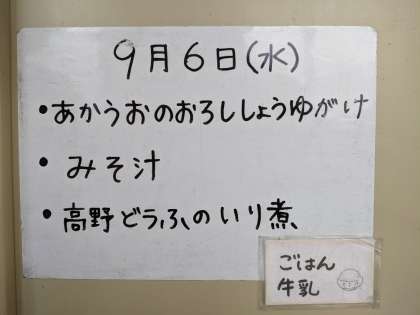 9月6日(水)
・あかうおのおろししょうゆがけ
・みそ汁
・高野どうふのいり煮
ごはん
牛乳